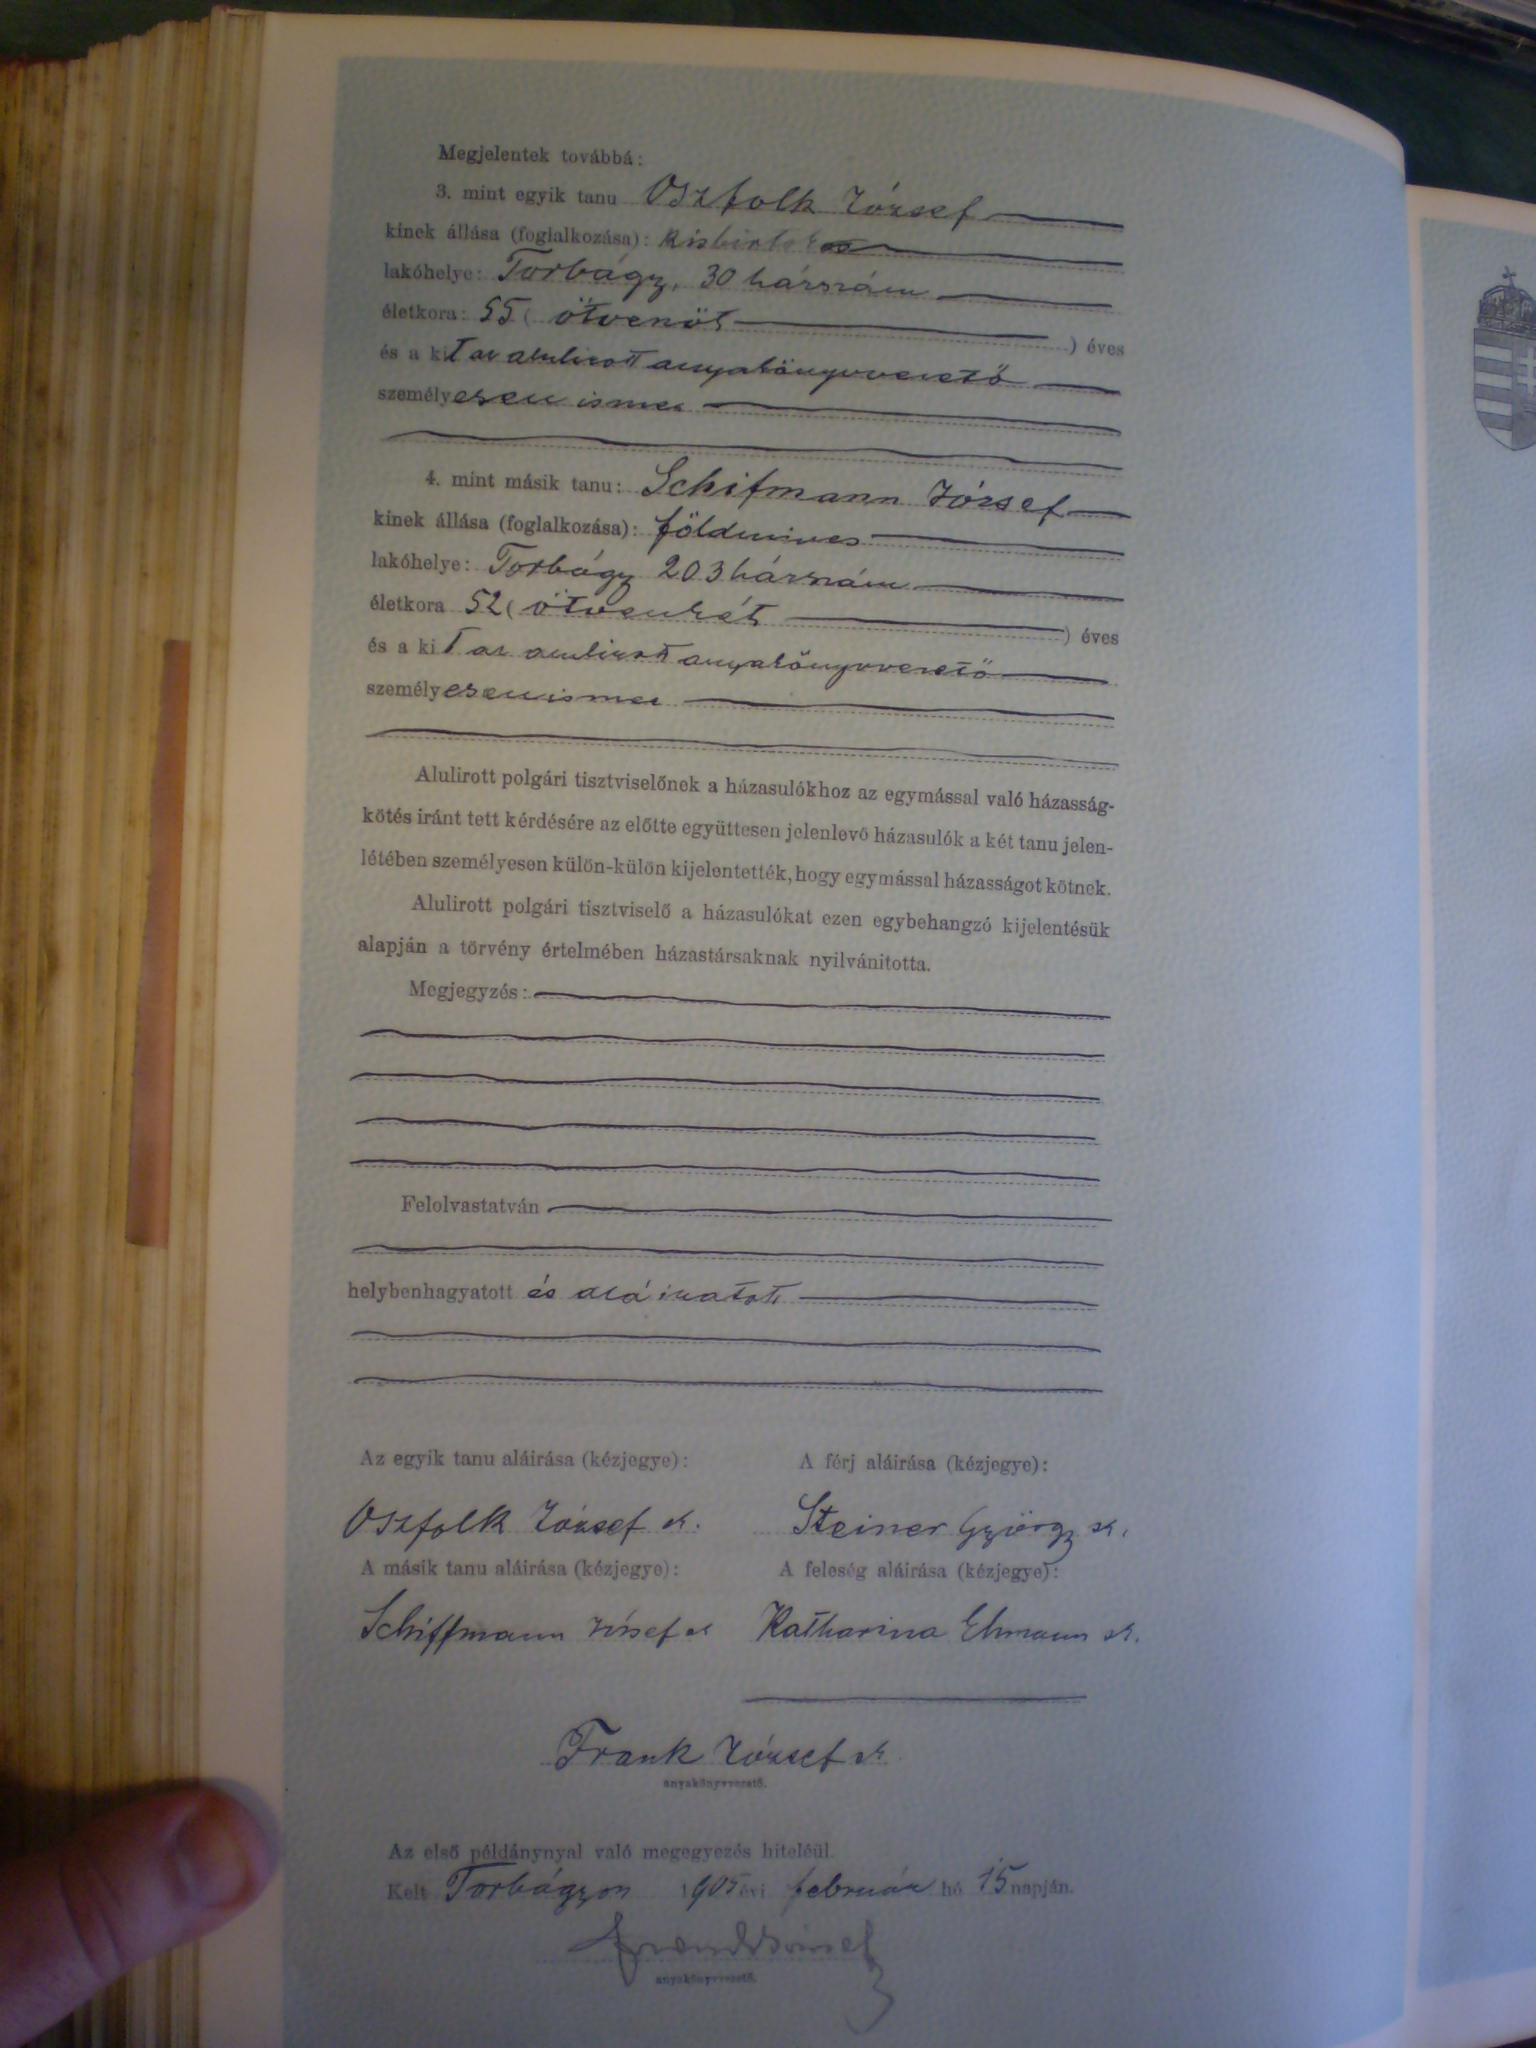 Megjelentek továbbá:
3. mint egyik tanu Oszfolk József
kinek állása (foglalkozása): kisbirtokos
lakóhelye: Torbágy, 30 házszám
életkora: 55 ( ötvenöt ) éves
és a kit az alulirott anyakönyvvezető
személyesen ismer
4. mint másik tanu: Schifmann József
kinek állása (foglalkozása): földmives
lakóhelye: Torbágy 203 házszám
életkora 52 ( ötvenkét ) éves
és a kit az alulirott anyakönyvvezető
személyesen ismer
Alulirott polgári tisztviselőnek a házasulókhoz az egymással való házasság-
kötés iránt tett kérdésére az előtte együttesen jelenlevő házasulók a két tanu jelen-
létében személyesen külön-külön kijelentették, hogy egymással házasságot kötnek.
Alulirott polgári tisztviselő a házasulókat ezen egybehangzó kijelentésük
alapján a törvény értelmében házastársaknak nyilvánitotta.
Megjegyzés:
Felolvastatván
helybenhagyatott és aláiratott
Az egyik tanu aláirása (kézjegye): A férj aláirása (kézjegye):
Oszfolk József sk. Steiner György sk.
A másik tanu aláirása (kézjegye): A feleség aláirása (kézjegye):
Schiffmann József sk Katharina Ehmann sk.
Frank József sk.
anyakönyvvezető.
Az első példánynyal való megegyezés hiteléül.
Kelt Torbágyon 1905 évi február hó 15 napján.
anyakönyvvezető.